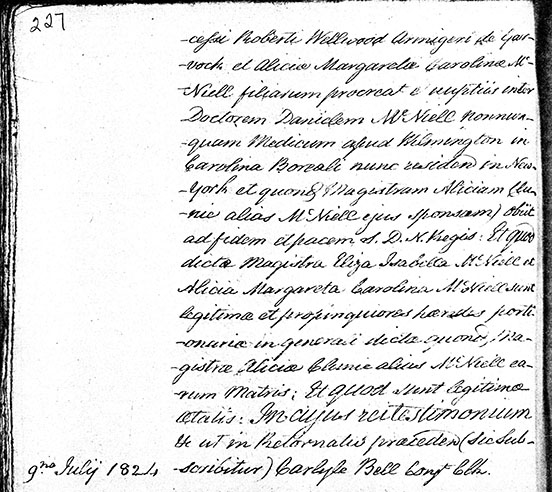 227
-cessi Roberti Wellwood Armigeri de Gar-
-voch et Alicia Margareta Carolina Mc
-Niell filiarum procreat e nuptiis inter
Doctorem Danielem McNiell nonnun-
-quam Medicum apud Wilmington in
Carolina Boreali nunc residen in New
-York et quond Magistram Aliciam Clu-
-nie alias McNiell ejus sponsam) obiit
ad fidem et pacem s. D. N. Regis: Et quod
dictæ Magistra Eliza Isabella McNiell et
Alicia Margareta Carolina McNiell sunt
legitimæ et propinquiores hæredes porti
-onariæ in generali dictæ quond Ma-
-gistræ Aliciæ Clunie alias McNiell ea-
-rum Matris: Et quod sunt legitimæ
ætatis: In cujus rei testimonium
& ut in Retornatis præceden (sic Sub-
9no Julij 1824 -scribitur) Carlyle Bell Conjt Clk.